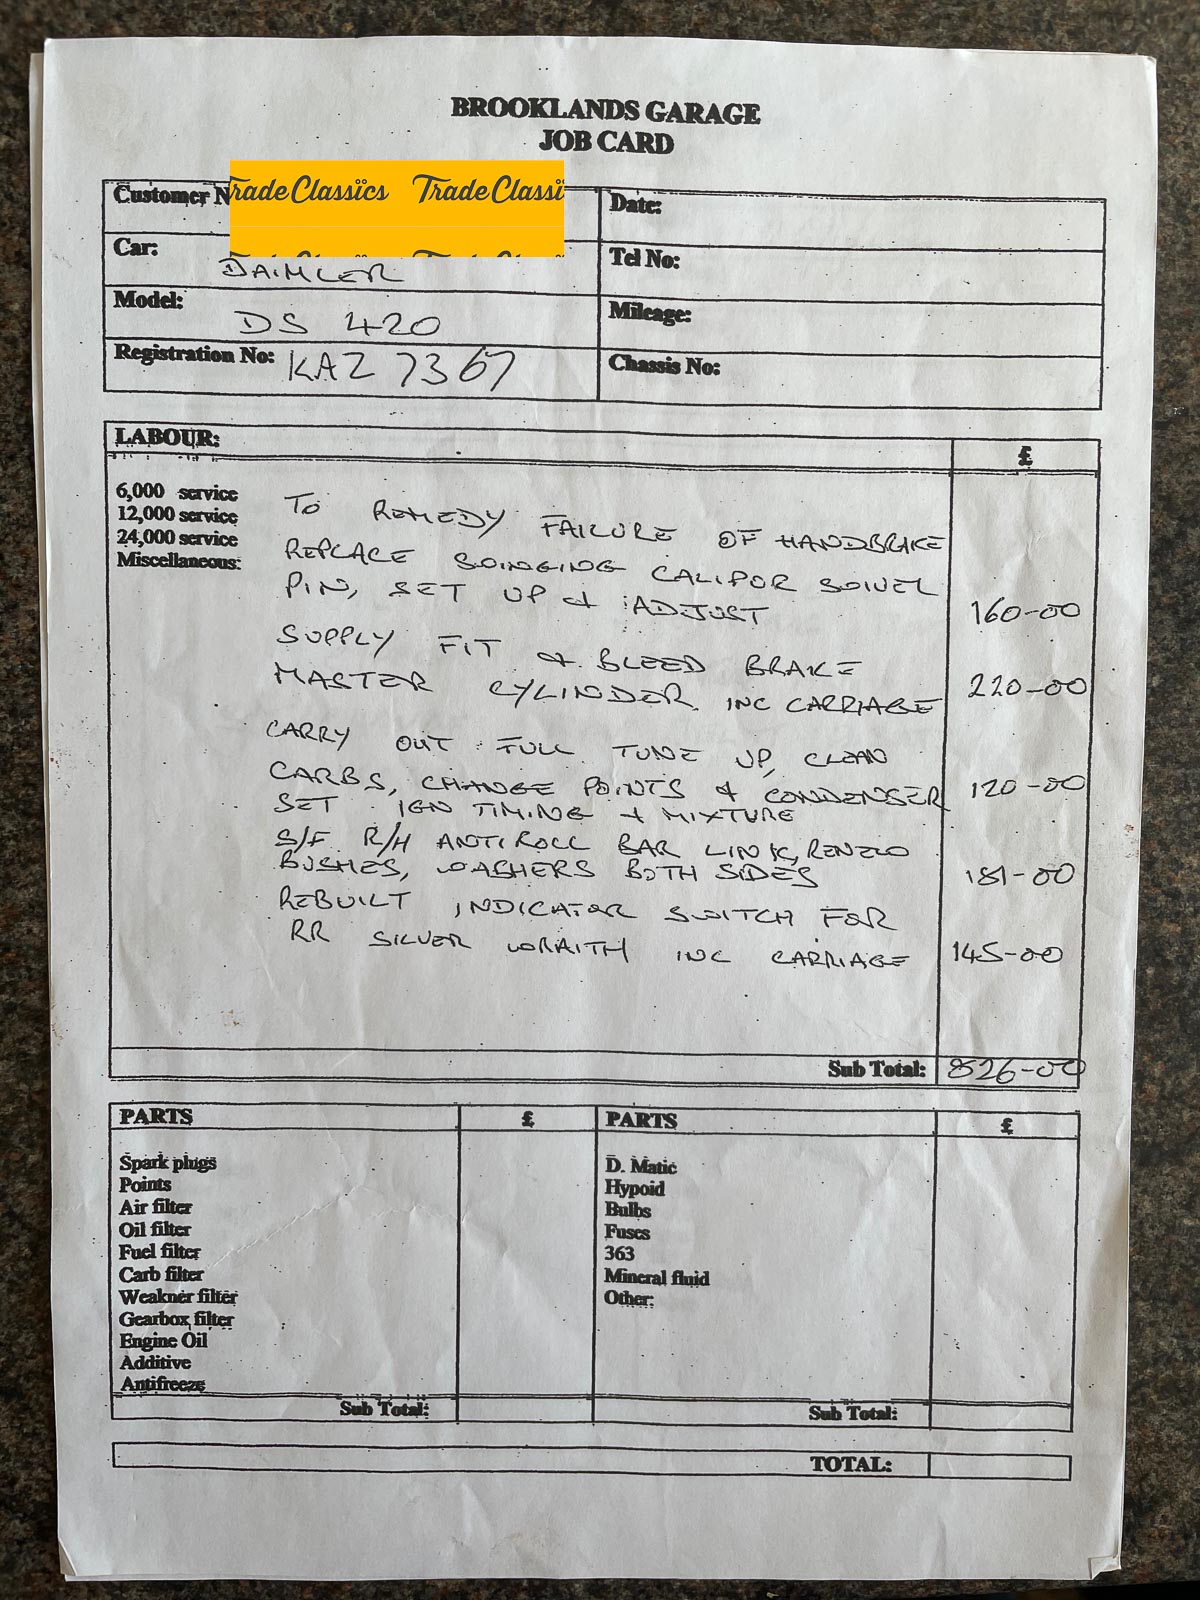 BROOKLANDS GARAGE
JOB CARD
Customer N
TradeClassics TradeClassi
Date:
Car: DAIMLER
Tel No:
Model: DS 420
Mileage:
Registration No: KAZ 7367
Chassis No:
LABOUR:
£
6,000 service
12,000 service
24,000 service
Miscellaneous:
TO REMEDY FAILURE OF HANDBRAKE
REPLACE SWINGING CALIPOR SWIVEL
PIN, SET UP & ADJUST 160-00
SUPPLY FIT & BLEED BRAKE
MASTER CYLINDER INC CARRIAGE 220-00
CARRY OUT FULL TUNE UP, CLEAN
CARBS, CHANGE POINTS & CONDENSER 120-00
SET IGN TIMING & MIXTURE
S/F R/H ANTIROLL BAR LINK, RENEW
BUSHES, WASHERS BOTH SIDES 181-00
REBUILT INDICATOR SWITCH FOR
RR SILVER WRAITH INC CARRIAGE 145-00
Sub Total: 826-00
PARTS £ PARTS £
Spark plugs
Points
Air filter
Oil filter
Fuel filter
Carb filter
Weakner filter
Gearbox filter
Engine Oil
Additive
Antifreeze
Sub Total:
D. Matic
Hypoid
Bulbs
Fuses
363
Mineral fluid
Other:
Sub Total:
TOTAL: